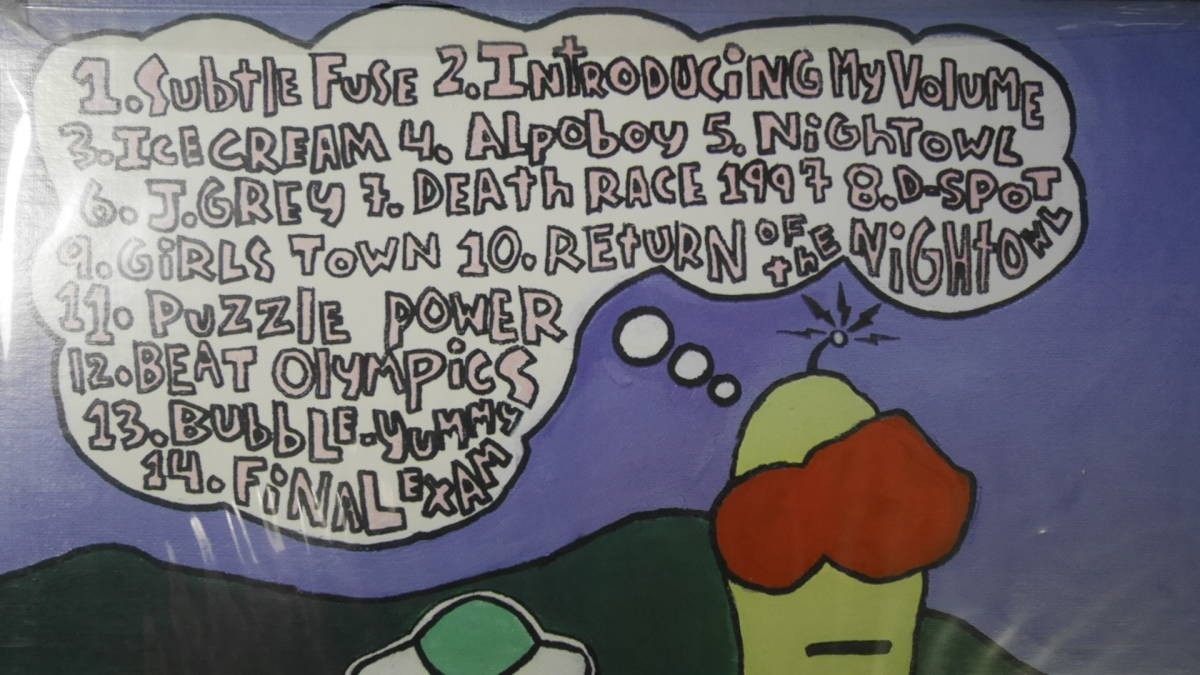 1. Subtle Fuse 2. Introducing My Volume
3. Ice Cream 4. Alpoboy 5. Nightowl
6. J. Grey 7. Death Race 1997 8. D-Spot
9. Girls Town 10. Return of the Nightowl
11. Puzzle Power
12. Beat Olympics
13. Bubble-Yummy
14. Final Exam